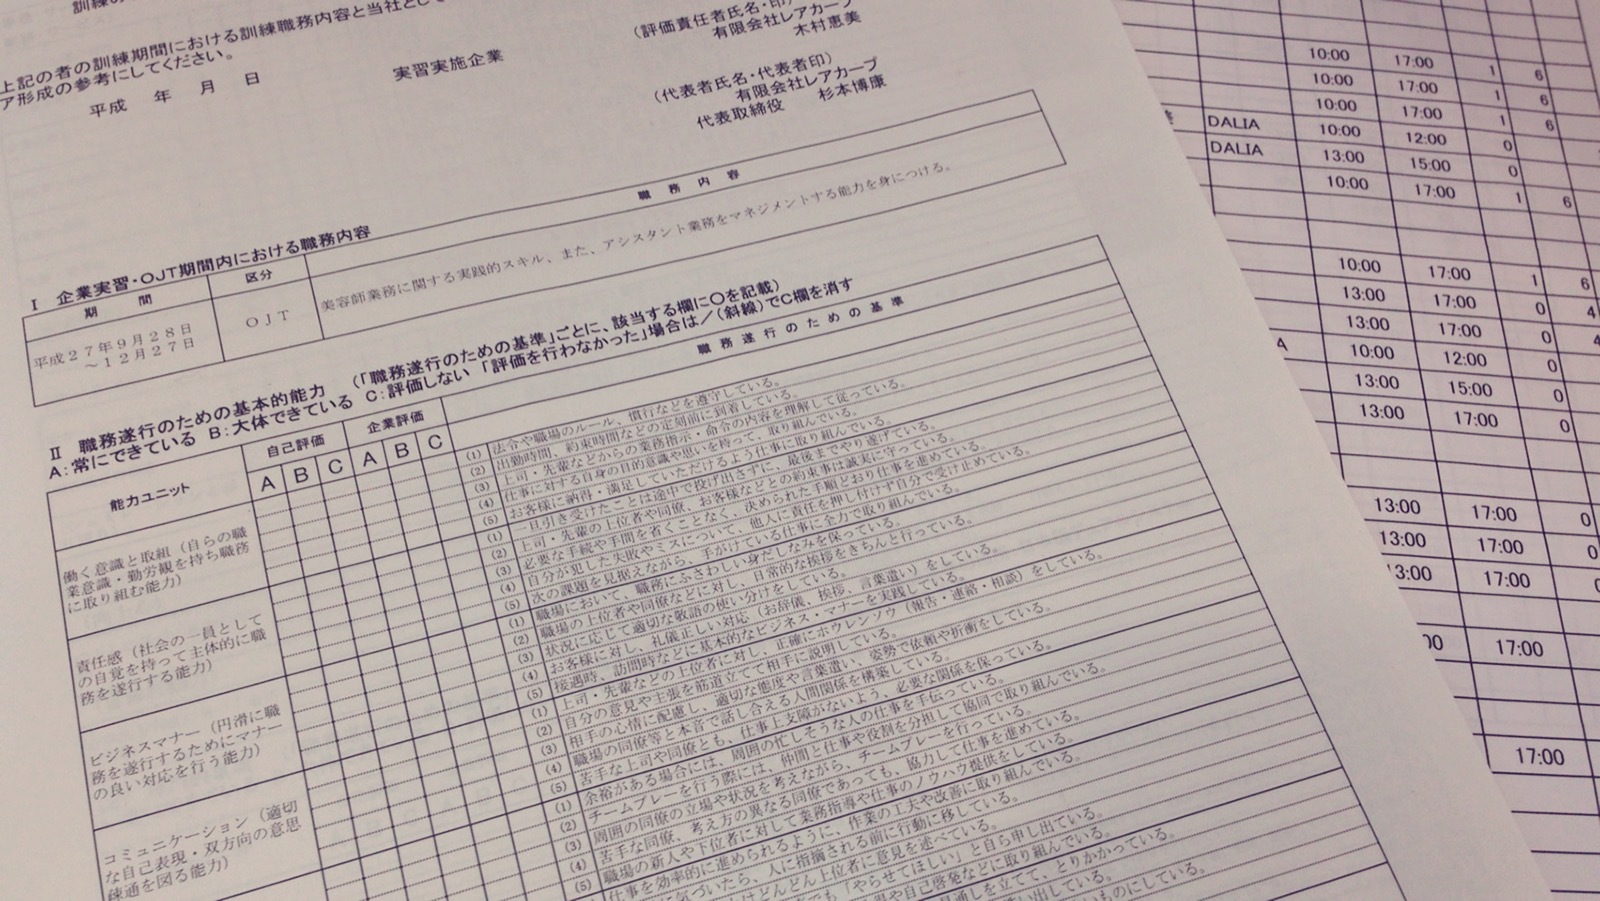 上記の者の訓練期間における訓練職務内容と当社として
ア形成の参考にしてください。
平成 年 月 日
実習実施企業
(評価責任者氏名・印)
有限会社レアカーブ
木村恵美
(代表者氏名・代表者印)
有限会社レアカーブ
代表取締役 杉本博康
Ⅰ 企業実習・OJT期間内における職務内容
期 間
区分
職 務 内 容
平成27年9月28日
～12月27日
OJT
美容師業務に関する実践的スキル、また、アシスタント業務をマネジメントする能力を身につける。
Ⅱ 職務遂行のための基本的能力 (「職務遂行のための基準」ごとに、該当する欄に○を記載)
A:常にできている B:大体できている C:評価しない 「評価を行わなかった」場合は/(斜線)でC欄を消す
能力ユニット
自己評価
企業評価
職 務 遂 行 の た め の 基 準
A B C A B C
働く意識と取組(自らの職
業意識・勤労観を持ち職務
に取り組む能力)
(1) 法令や職場のルール、慣行などを遵守している。
(2) 出勤時間、約束時間などの定刻前に到着している。
(3) 上司・先輩などからの業務指示・命令の内容を理解して従っている。
(4) 仕事に対する自身の目的意識や思いを持って、取り組んでいる。
(5) お客様に納得・満足していただけるよう仕事に取り組んでいる。
責任感(社会の一員として
の自覚を持って主体的に職
務を遂行する能力)
(1) 一旦引き受けたことは途中で投げ出さずに、最後までやり遂げている。
(2) 上司・先輩の上位者や同僚、お客様などとの約束事は誠実に守っている。
(3) 必要な手続や手間を省くことなく、決められた手順どおり仕事を進めている。
(4) 自分が犯した失敗やミスについて、他人に責任を押し付けず自分で受け止めている。
(5) 次の課題を見据えながら、手がけている仕事に全力で取り組んでいる。
ビジネスマナー(円滑に職
務を遂行するためにマナー
の良い対応を行う能力)
(1) 職場において、職務にふさわしい身だしなみを保っている。
(2) 職場の上位者や同僚などに対し、日常的な挨拶をきちんと行っている。
(3) 状況に応じて適切な敬語の使い分けをしている。
(4) お客様に対し、礼儀正しい対応(お辞儀、挨拶、言葉遣い)をしている。
(5) 接遇時、訪問時などに基本的なビジネス・マナーを実践している。
コミュニケーション(適切
な自己表現・双方向の意思
疎通を図る能力)
(1) 上司・先輩などの上位者に対し、正確にホウレンソウ(報告・連絡・相談)をしている。
(2) 自分の意見や主張を筋道立てて相手に説明している。
(3) 相手の心情に配慮し、適切な態度や言葉遣い、姿勢で依頼や折衝をしている。
(4) 職場の同僚等と本音で話し合える人間関係を構築している。
(5) 苦手な上司や同僚とも、仕事上支障がないよう、必要な関係を保っている。
(1) 余裕がある場合には、周囲の忙しそうな人の仕事を手伝っている。
(2) チームプレーを行う際には、仲間と仕事や役割を分担して協同で取り組んでいる。
(3) 周囲の同僚の立場や状況を考えながら、チームプレーを行っている。
(4) 苦手な同僚、考え方の異なる同僚であっても、協力して仕事を進めている。
(5) 職場の新人や下位者に対して業務指導や仕事のノウハウ提供をしている。
仕事を効率的に進められるように、作業の工夫や改善に取り組んでいる。
に気づいたら、人に指摘される前に行動に移している。
けどんどん上位者に意見を述べている。
でも「やらせてほしい」と自ら申し出ている。
や自己啓発などに取り組んでいる。
見通しを立てて、とりかかっている。
10:00 17:00 1 6
10:00 17:00 1 6
10:00 17:00 1 6
DALIA 10:00 12:00 0
DALIA 13:00 15:00 0
10:00 17:00 1 6
10:00 17:00 1 6
13:00 17:00 0 4
13:00 17:00 0 4
A 10:00 12:00 0
13:00 15:00 0
13:00 17:00 0
13:00 17:00 0
13:00 17:00 0
13:00 17:00 0
00 17:00
17:00